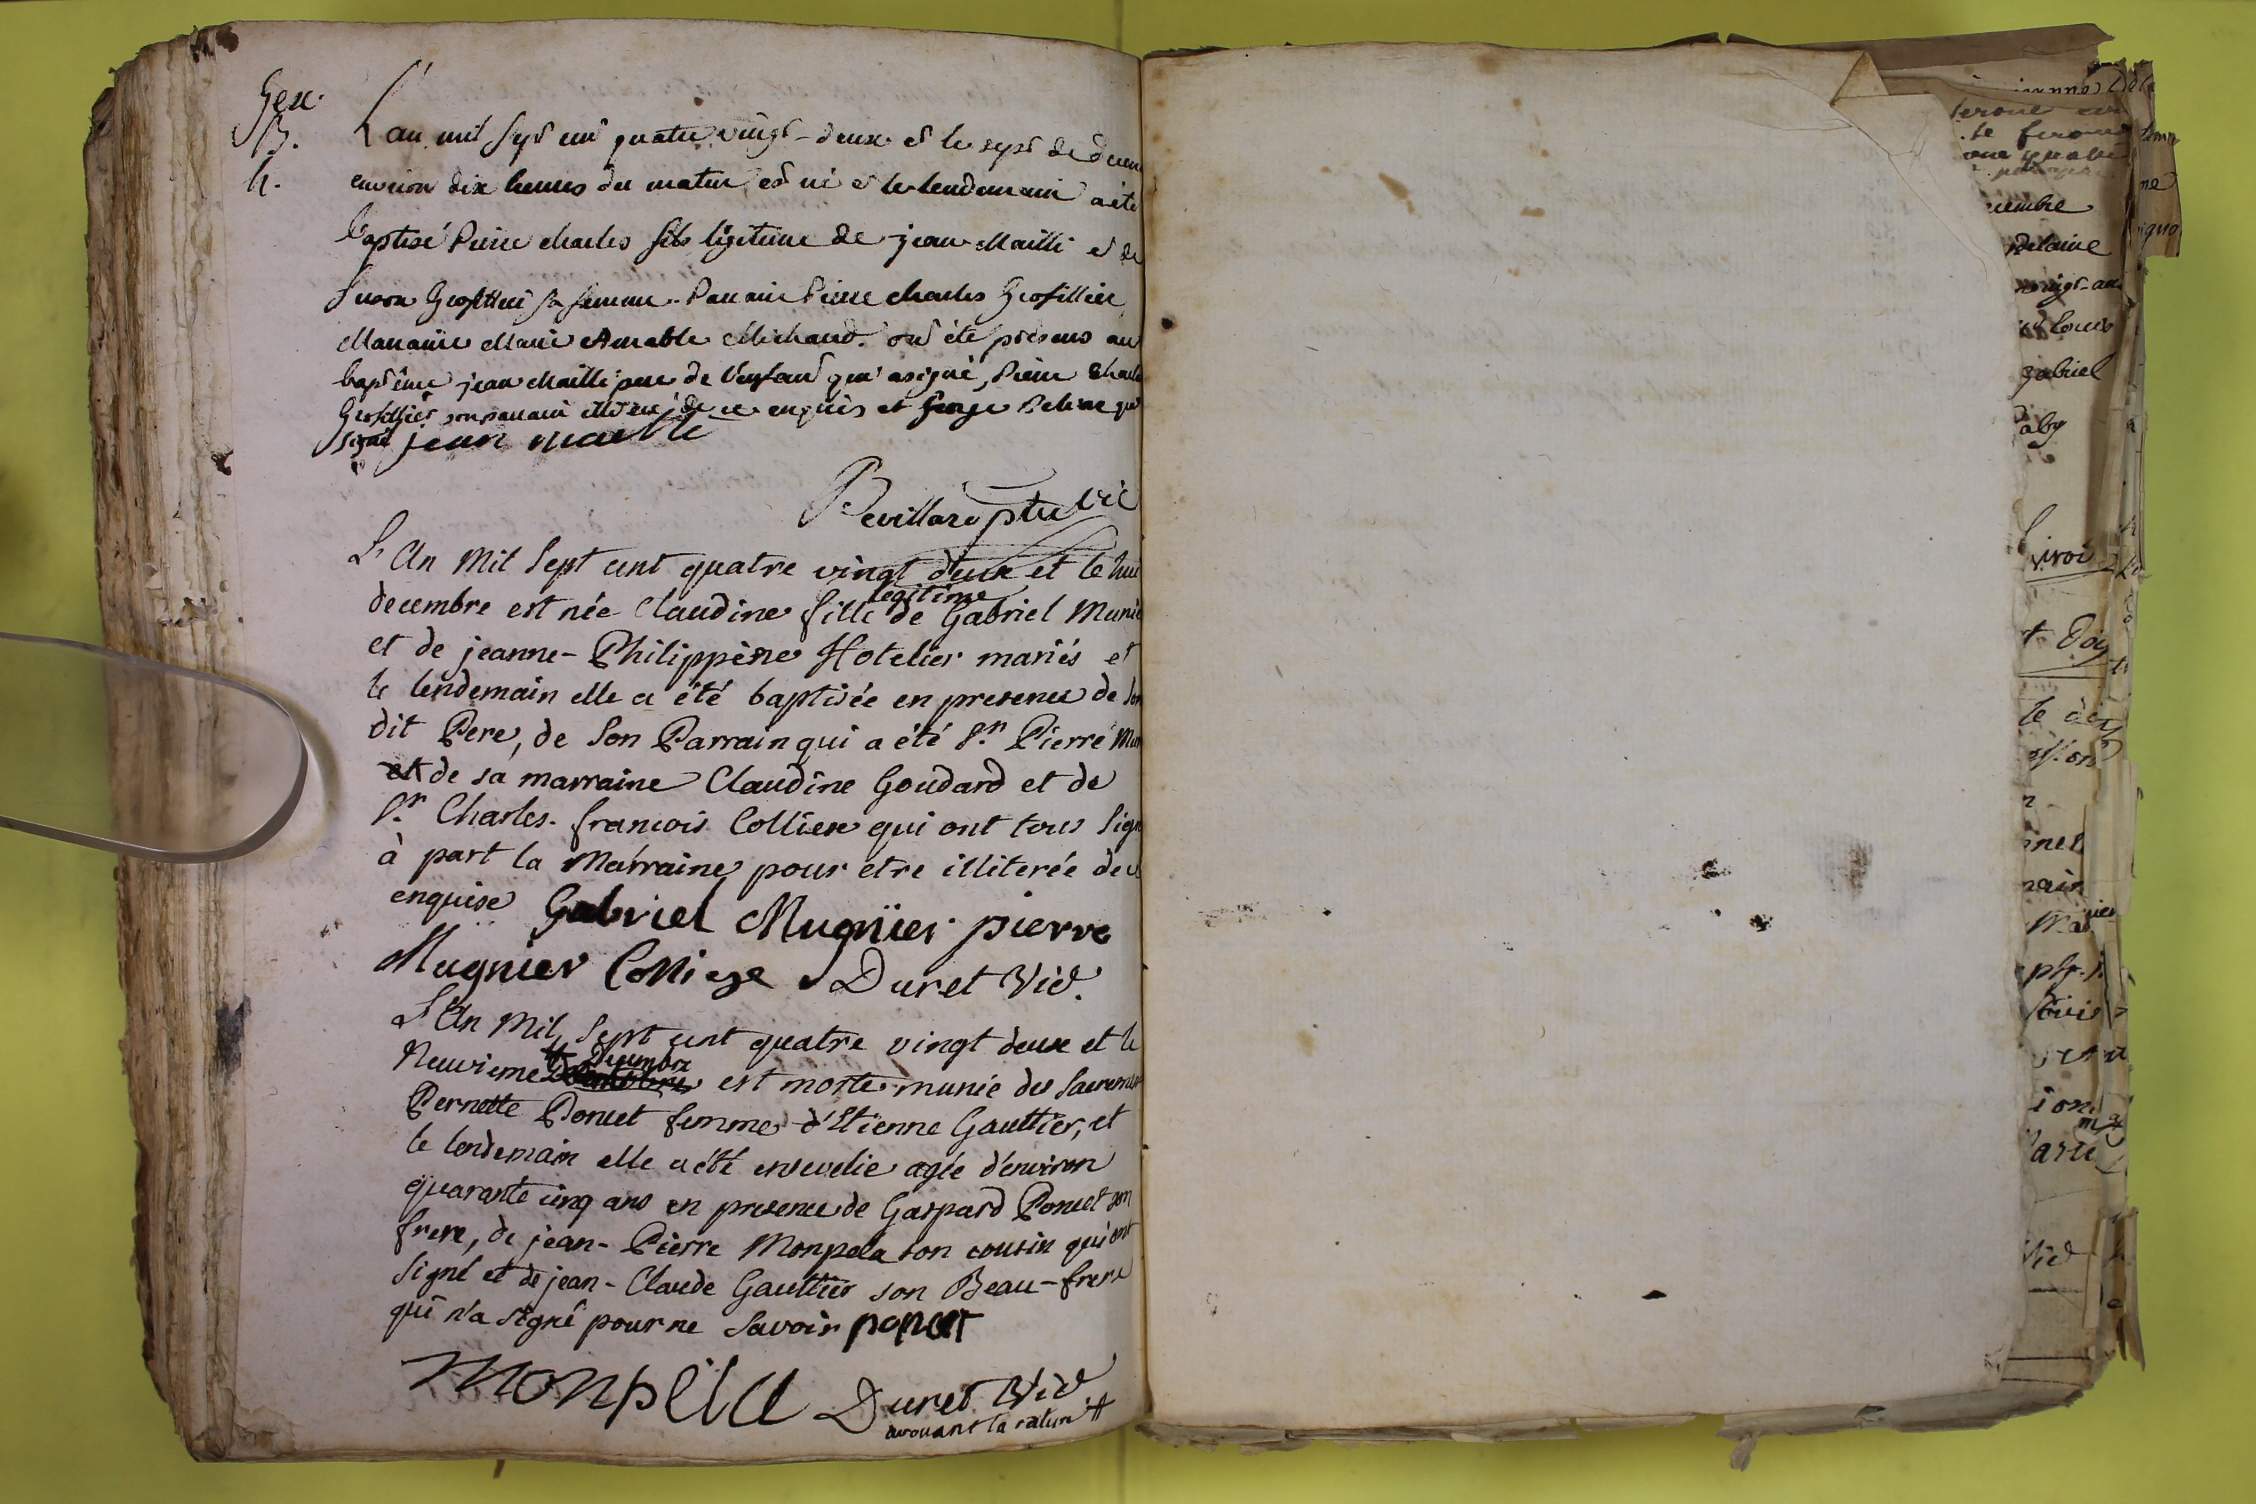 Gex.
B.
h.
L'an mil sept cent quatre vingt-deux et le sept de decem
environ dix heures du matin est né et le lendemain a été
baptisé Pierre charles fils légitime de jean Mailli et de
Suson Grosfillier sa femme. Parrain Pierre charles Grosfillier
Marraine Marie Amable Michaud. ont été présens au
baptême jean Mailli pere de l'enfant qui a signé, Pierre Charle
Grosfillier son parrain illiteré de ce enquis et George Pelisse qui
signé jean maille
Revillard ptre vic
L'An Mil Sept cent quatre vingt deux et le hui
decembre est née Claudine fille légitime de Gabriel Munié
et de jeanne-Philippène Hotelier mariés et
le lendemain elle a été baptisée en presence de son
dit Pere, de Son Parrain qui a été Sr. Pierre Mun
et de sa marraine Claudine Goudard et de
Sr. Charles-francois Colliex qui ont tous Sign
à part la Marraine pour etre illiterée de ce
enquise Gabriel Mugnier pierre
Mugnier Colliex Duret Vic.
L'An Mil Sept cent quatre vingt deux et le
Neuvieme # Decembre est morte munie des Sacremen
Pernette Poncet femme d'Etienne Gaulttier, et
le lendemain elle a été ensevelie agée d'environ
quarante cinq ans en presence de Gaspard Poncet son
frere, de jean-Pierre Monpela son cousin qui ont
Signé et de jean-Claude Gaulttier son Beau-frere
qui n'a signé pour ne Savoir poncet
monpela Duret Vic
avouant la rature #
cembre
delaine
vingt-an
louis
gabriel